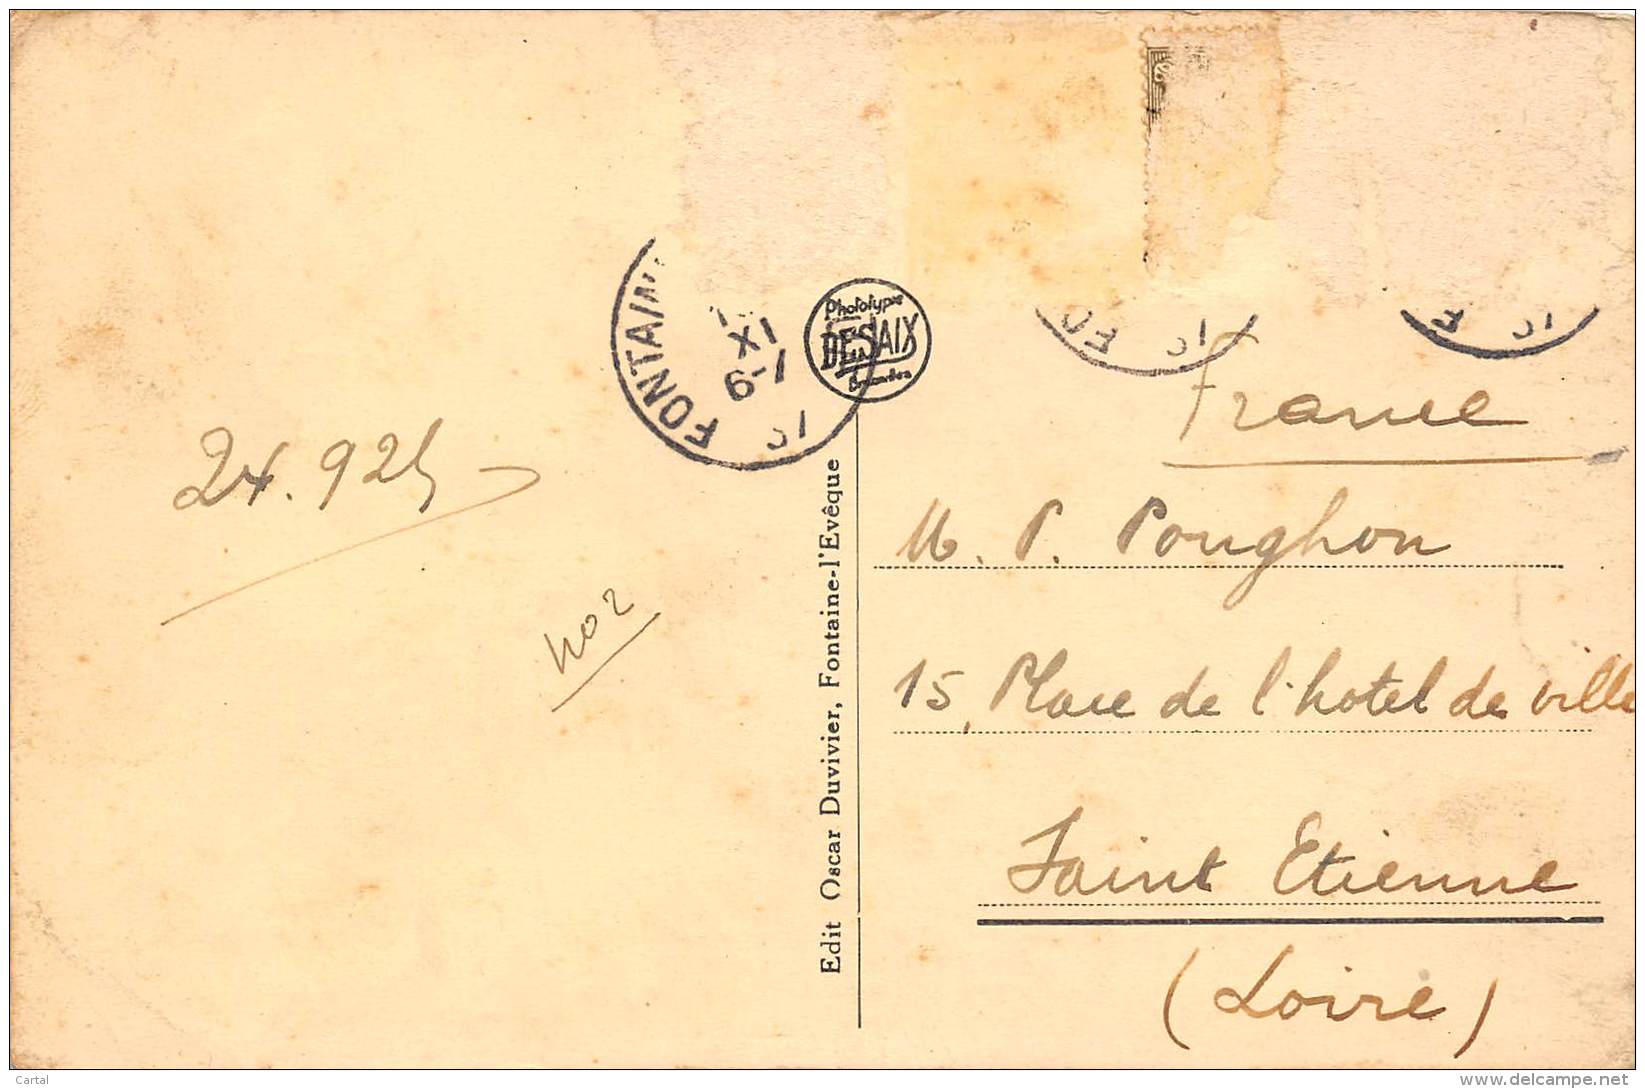 FONTAIN
XI
6-7
Phototypie
DESAIX
Bruxelles
FO
France
24.925
402
M. P. Poughon
15, Place de l'hotel de ville
Saint Etienne
(Loire)
Edit Oscar Duvivier, Fontaine-l'Evêque
Cartal
www.delcampe.net